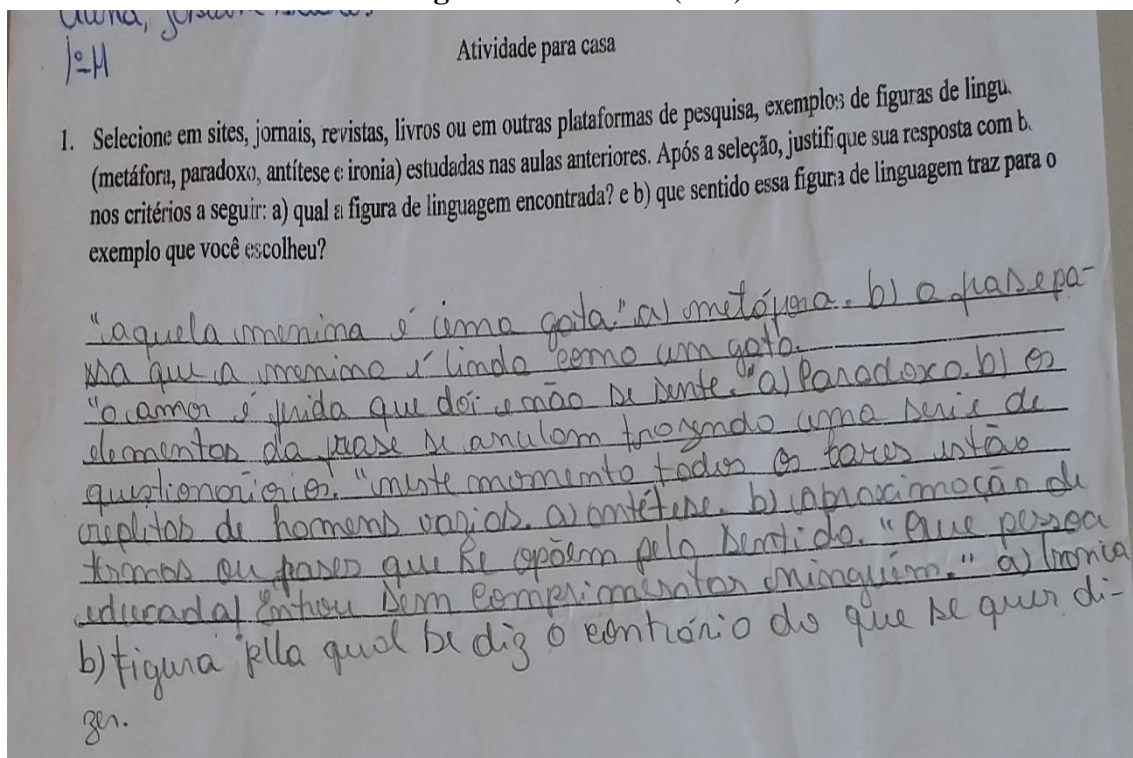 1º M
Atividade para casa
1. Selecione em sites, jornais, revistas, livros ou em outras plataformas de pesquisa, exemplos de figuras de lingu
(metáfora, paradoxo, antítese e ironia) estudadas nas aulas anteriores. Após a seleção, justifique sua resposta com b
nos critérios a seguir: a) qual a figura de linguagem encontrada? e b) que sentido essa figura de linguagem traz para o
exemplo que você escolheu?
"aquela menina é uma gata." a) metáfora. b) a frase pa-
ssa que a menina é linda como um gato.
"o amor é ferida que dói e não se sente." a) Paradoxo. b) os
elementos da frase se anulam trazendo uma serie de
"neste momento todos os bares estão
de homens vazios. a) antétese. b) aproximação de
termos ou frases que se opõem pelo sentido. "Que pessoa
educada! Entrou sem comprimentar ninguém." a) Ironia
b) Figura pela qual se diz o contrário do que se quer di-
zer.